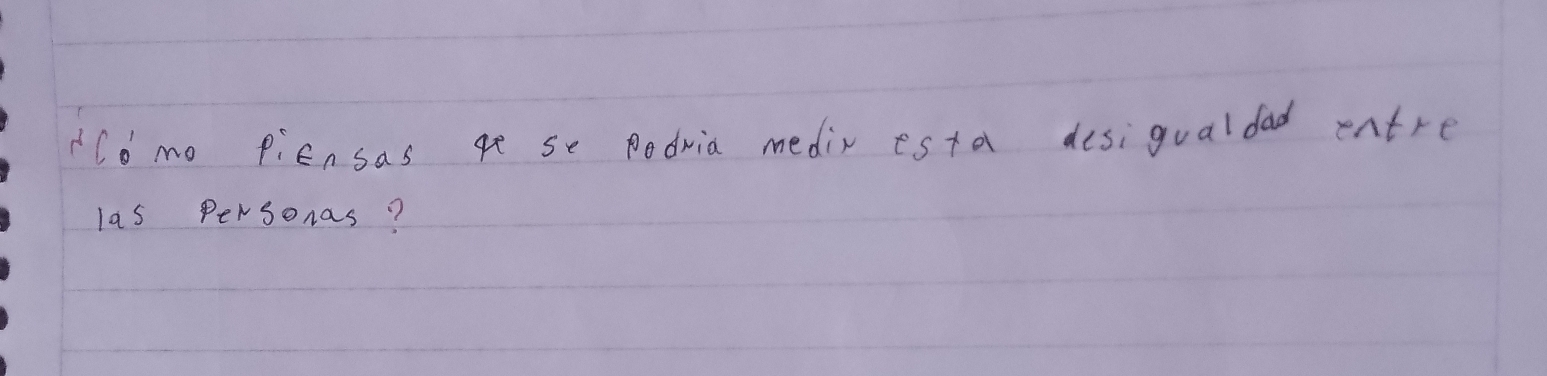 ¿Cómo piensas qe se podria medir esta desigualdad entre
las personas?